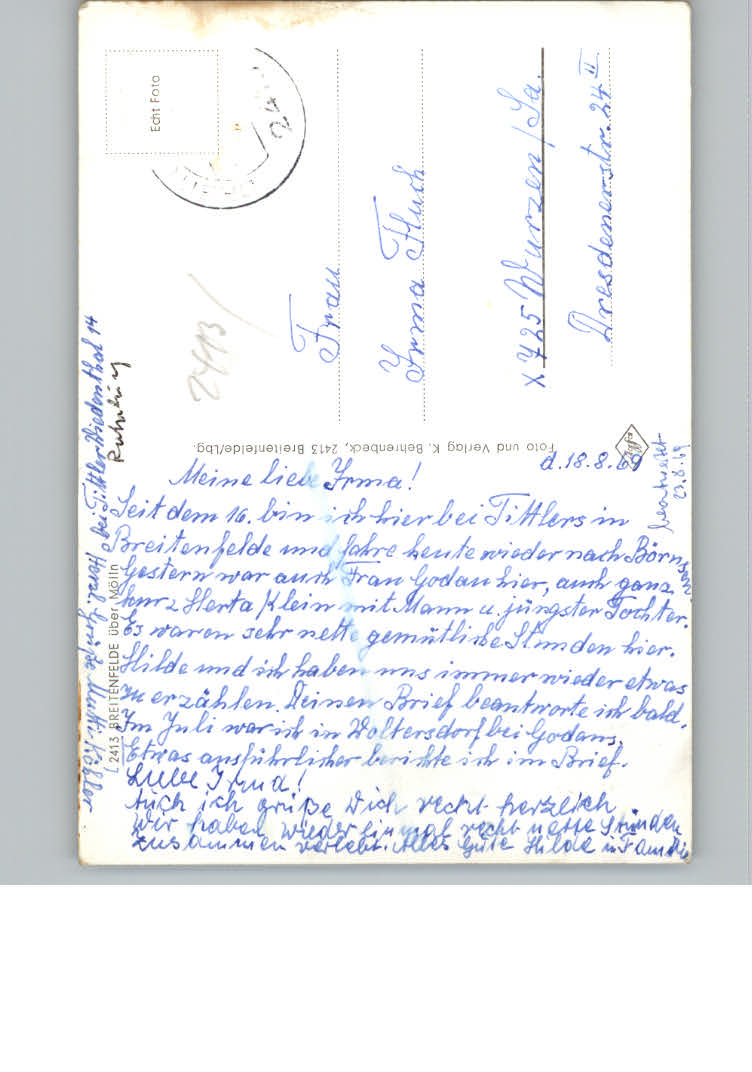 d. 18.8.69
Meine liebe Irma!
Seit dem 16. bin ich hier bei Tittlers in
Breitenfelde und fahre heute wieder nach Börnsen.
Gestern war auch Frau Godau hier, auch ganz
kurz Herta Klein mit Mann u. jüngster Tochter.
Es waren sehr nette gemütliche Stunden hier.
Hilde und ich haben uns immer wieder etwas
zu erzählen. Deinen Brief beantworte ich bald.
Im Juli war ich in Woltersdorf bei Godaus.
Etwas ausführlicher berichte ich im Brief.
Herzl. Grüße
Liebe Irma!
Auch ich grüße Dich recht herzlich
Wir haben wieder einmal recht nette Stunden
zusammen verlebt. Alles Gute Hilde u. Familie
bei Tittler
14
beantwortet
23.8.69
[2413 BREITENFELDE über Mölln
Foto und Verlag K. Behrenbeck, 2413 Breitenfelde/Lbg.
Echt Foto
24
2413/
Frau
Irma Fluch
X 725 Wurzen/Sa.
Dresdenerstr. 24 II